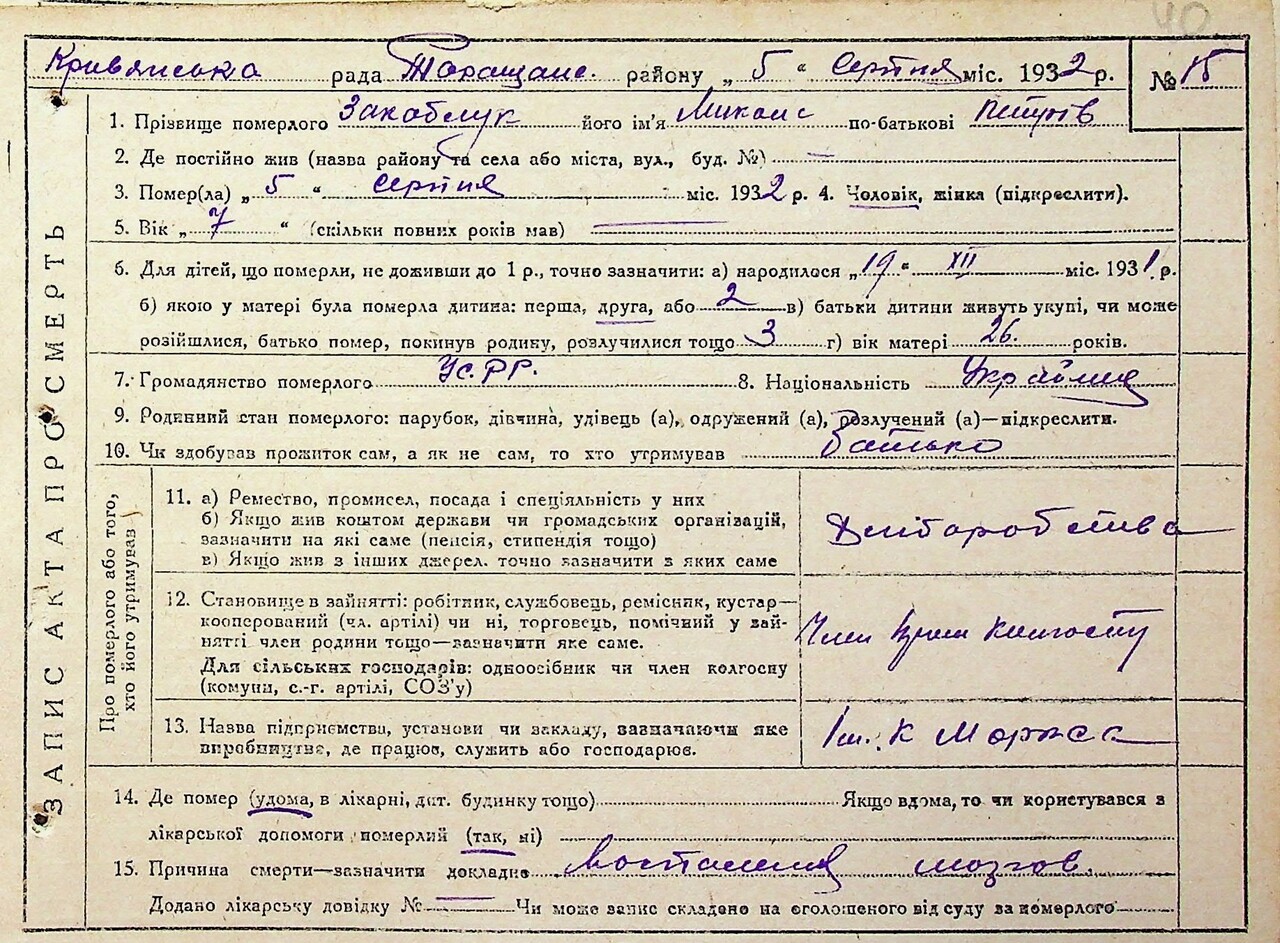 40
Кривянська рада Таращанс. району „ 5 “ серпня міс. 1932 р. № 15
1. Прізвище померлого Закаблук його ім'я по-батькові
2. Де постійно жив (назва району та села або міста, вул., буд. №) —
3. Помер(ла) „ 5 “ серпня міс. 1932 р. 4. Чоловік, жінка (підкреслити).
5. Вік „ 7 “ (скільки повних років мав) —
6. Для дітей, що померли, не доживши до 1 р., точно зазначити: а) народилося „19“ XII міс. 1931 р.
б) якою у матері була померла дитина: перша, друга, або 2 в) батьки дитини живуть укупі, чи може
розійшлися, батько помер, покинув родину, розлучилися тощо 3 г) вік матері 26. років.
7. Громадянство померлого УСРР. 8. Національність
9. Родинний стан померлого: парубок, дівчина, удівець (а), одружений (а), розлучений (а)—підкреслити.
10. Чи здобував прожиток сам, а як не сам, то хто утримував Батько
ЗАПИС АКТА ПРО СМЕРТЬ
Про померлого або того,
хто його утримував
11. а) Ремество, промисел, посада і спеціяльність у них
б) Якщо жив коштом держави чи громадських організацій,
зазначити на які саме (пенсія, стипендія тощо)
в) Якщо жив з інших джерел. точно зазначити з яких саме
Хліборобства
12. Становище в зайнятті: робітник, службовець, ремісник, кустар—
кооперований (чл. артілі) чи ні, торговець, помічний у зай-
нятті член родини тощо—зазначити яке саме.
Для сільських господарів: одноосібник чи член колгоспу
(комуни, с.-г. артілі, СОЗ'у)
Член
13. Назва підприємства, установи чи закладу, зазначаючи яке
виробництве, де працює, служить або господарює.
Ім. К Маркса
14. Де помер (удома, в лікарні, дит. будинку тощо) Якщо вдома, то чи користувався з
лікарської допомоги померлий (так, ні)
15. Причина смерти—зазначити докладно мозгов.
Додано лікарську довідку № — Чи може запис складено на оголошеного від суду за померлого